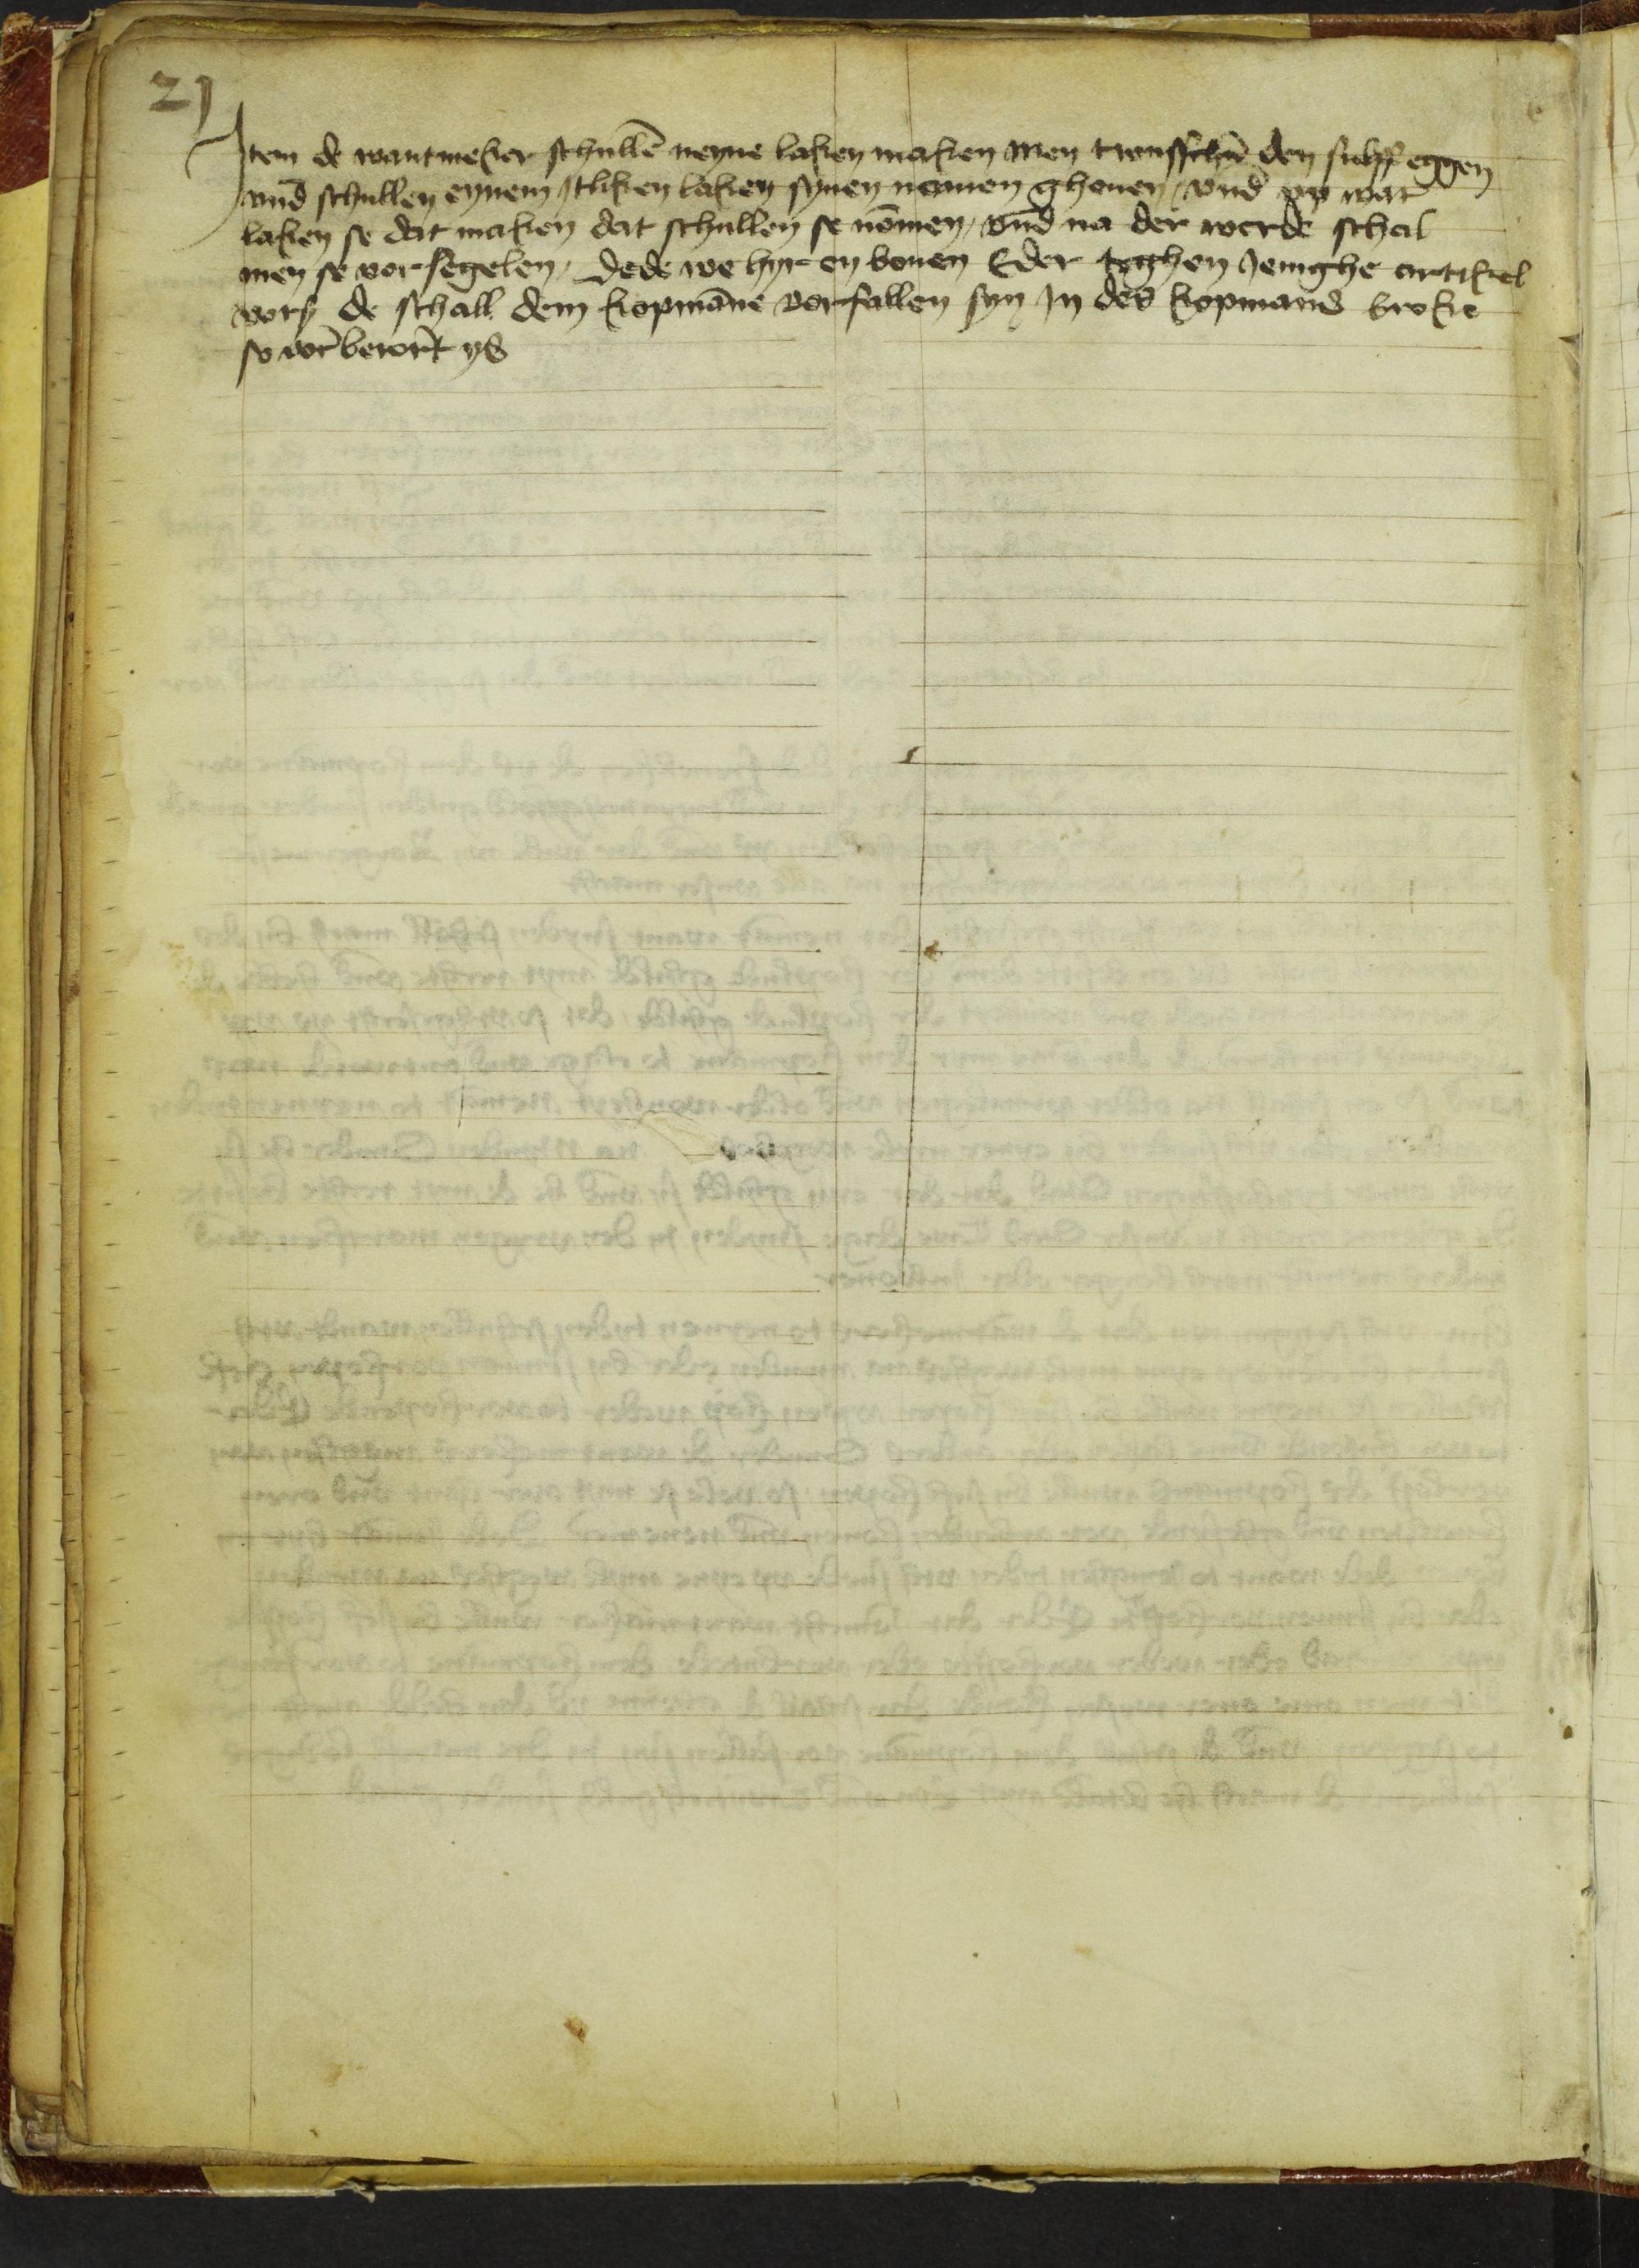 21
Item de wantmeker schullē neyne laken maken men twusschū den sulff eggen
vnd schullen eynem Itliken laken synen namen gheuen / vnd vp wat
laken se dat maken dat schullen se nōmen, vnd na der werde schal
men se vorsegelen, Dede we hyr en bouen Eder teghen Jenighe artikel
vors de schall dem kopmāne vorfallen syn In des kopmans broke
so vor berort ys